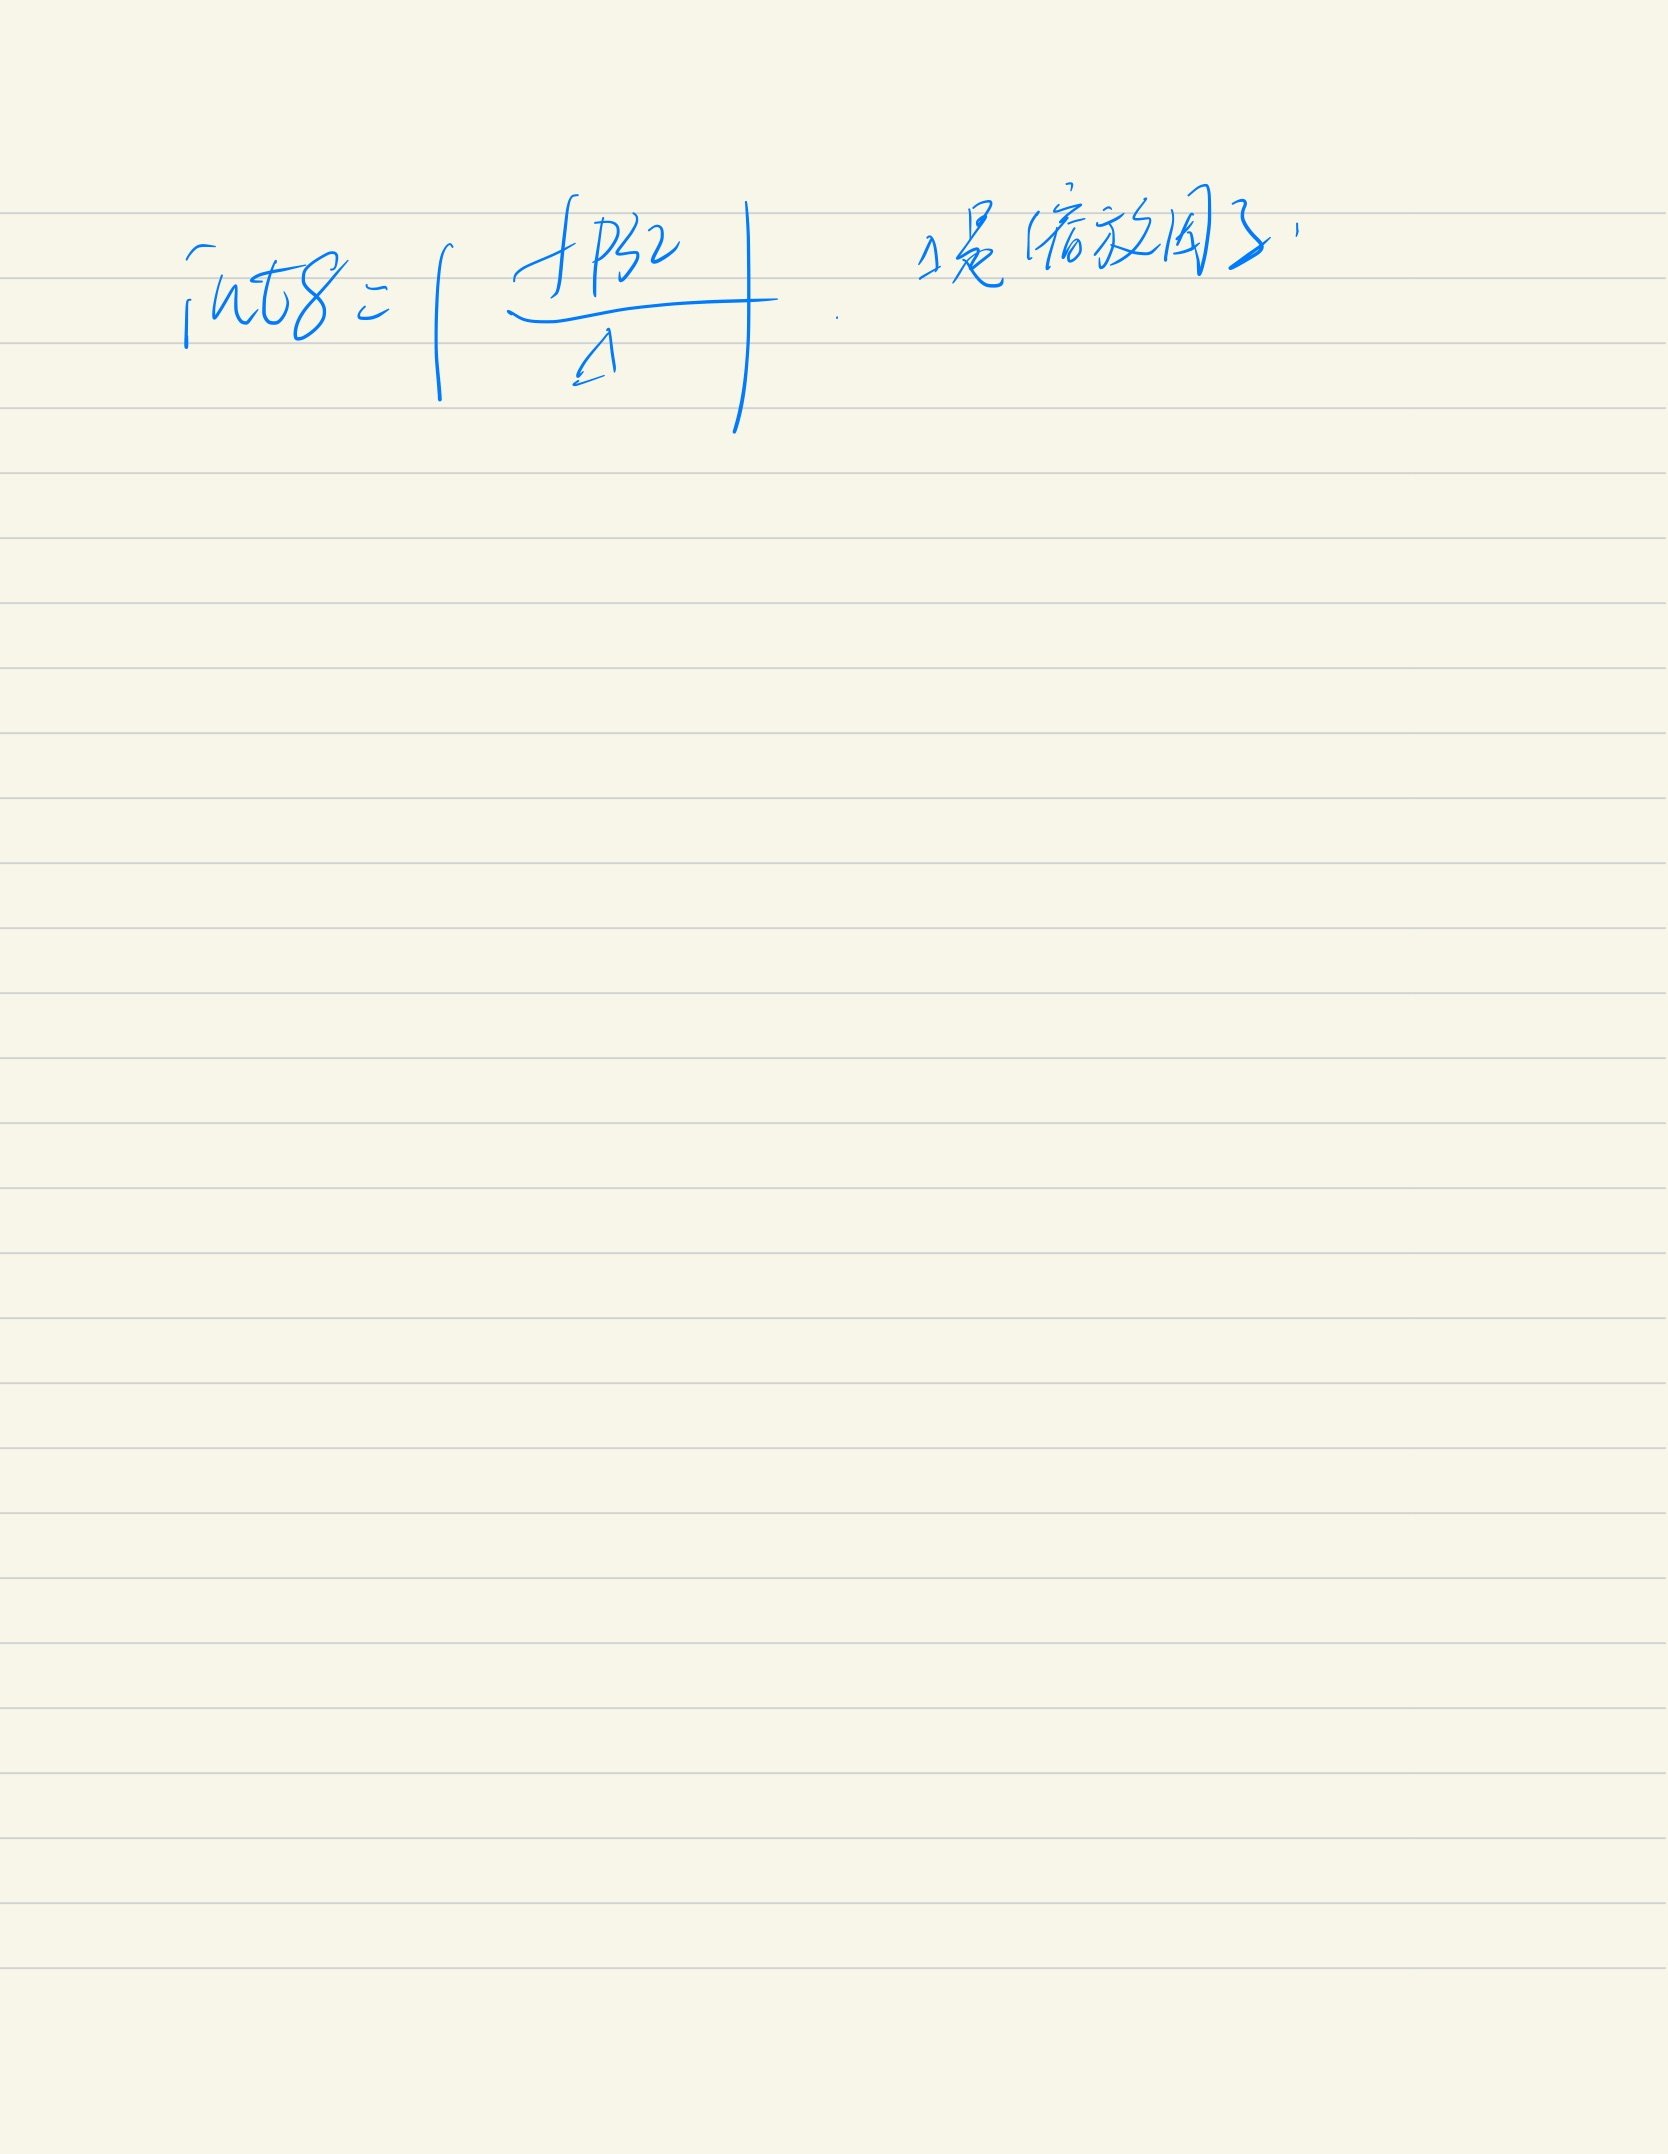 int8 = ⌈ fp32 / Δ ⌋ Δ是缩放因子.